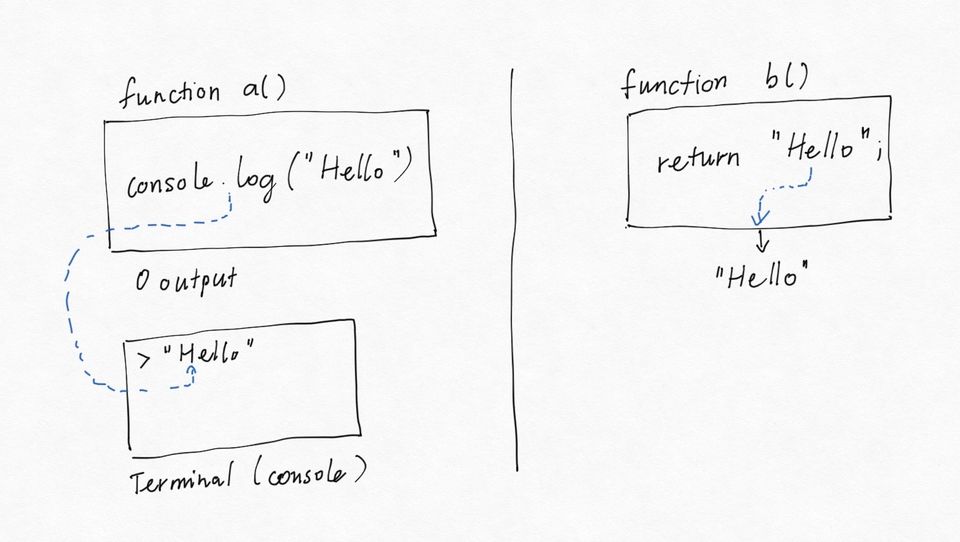 function a()
console.log("Hello")
0 output
> "Hello"
Terminal (console)
function b()
return "Hello";
"Hello"